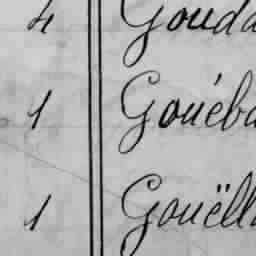 4 Gouda
1 Gouéba
1 Gouëll